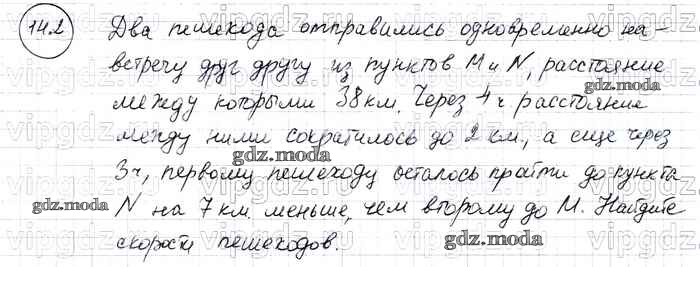 14.2 Два пешехода отправились одновременно на-
встречу друг другу из пунктов М и N, расстояние
между которыми 38 км. Через 4 ч расстояние
между ними сократилось до 2 км, а еще через
3 ч, первому пешеходу осталось пройти до пункта
N на 7 км. меньше, чем второму до М. Найдите
скорости пешеходов.
gdz.moda
gdz.moda
gdz.moda
gdz.moda